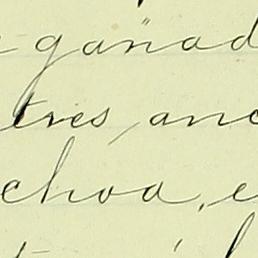 ganad
tres, anc
choa, e